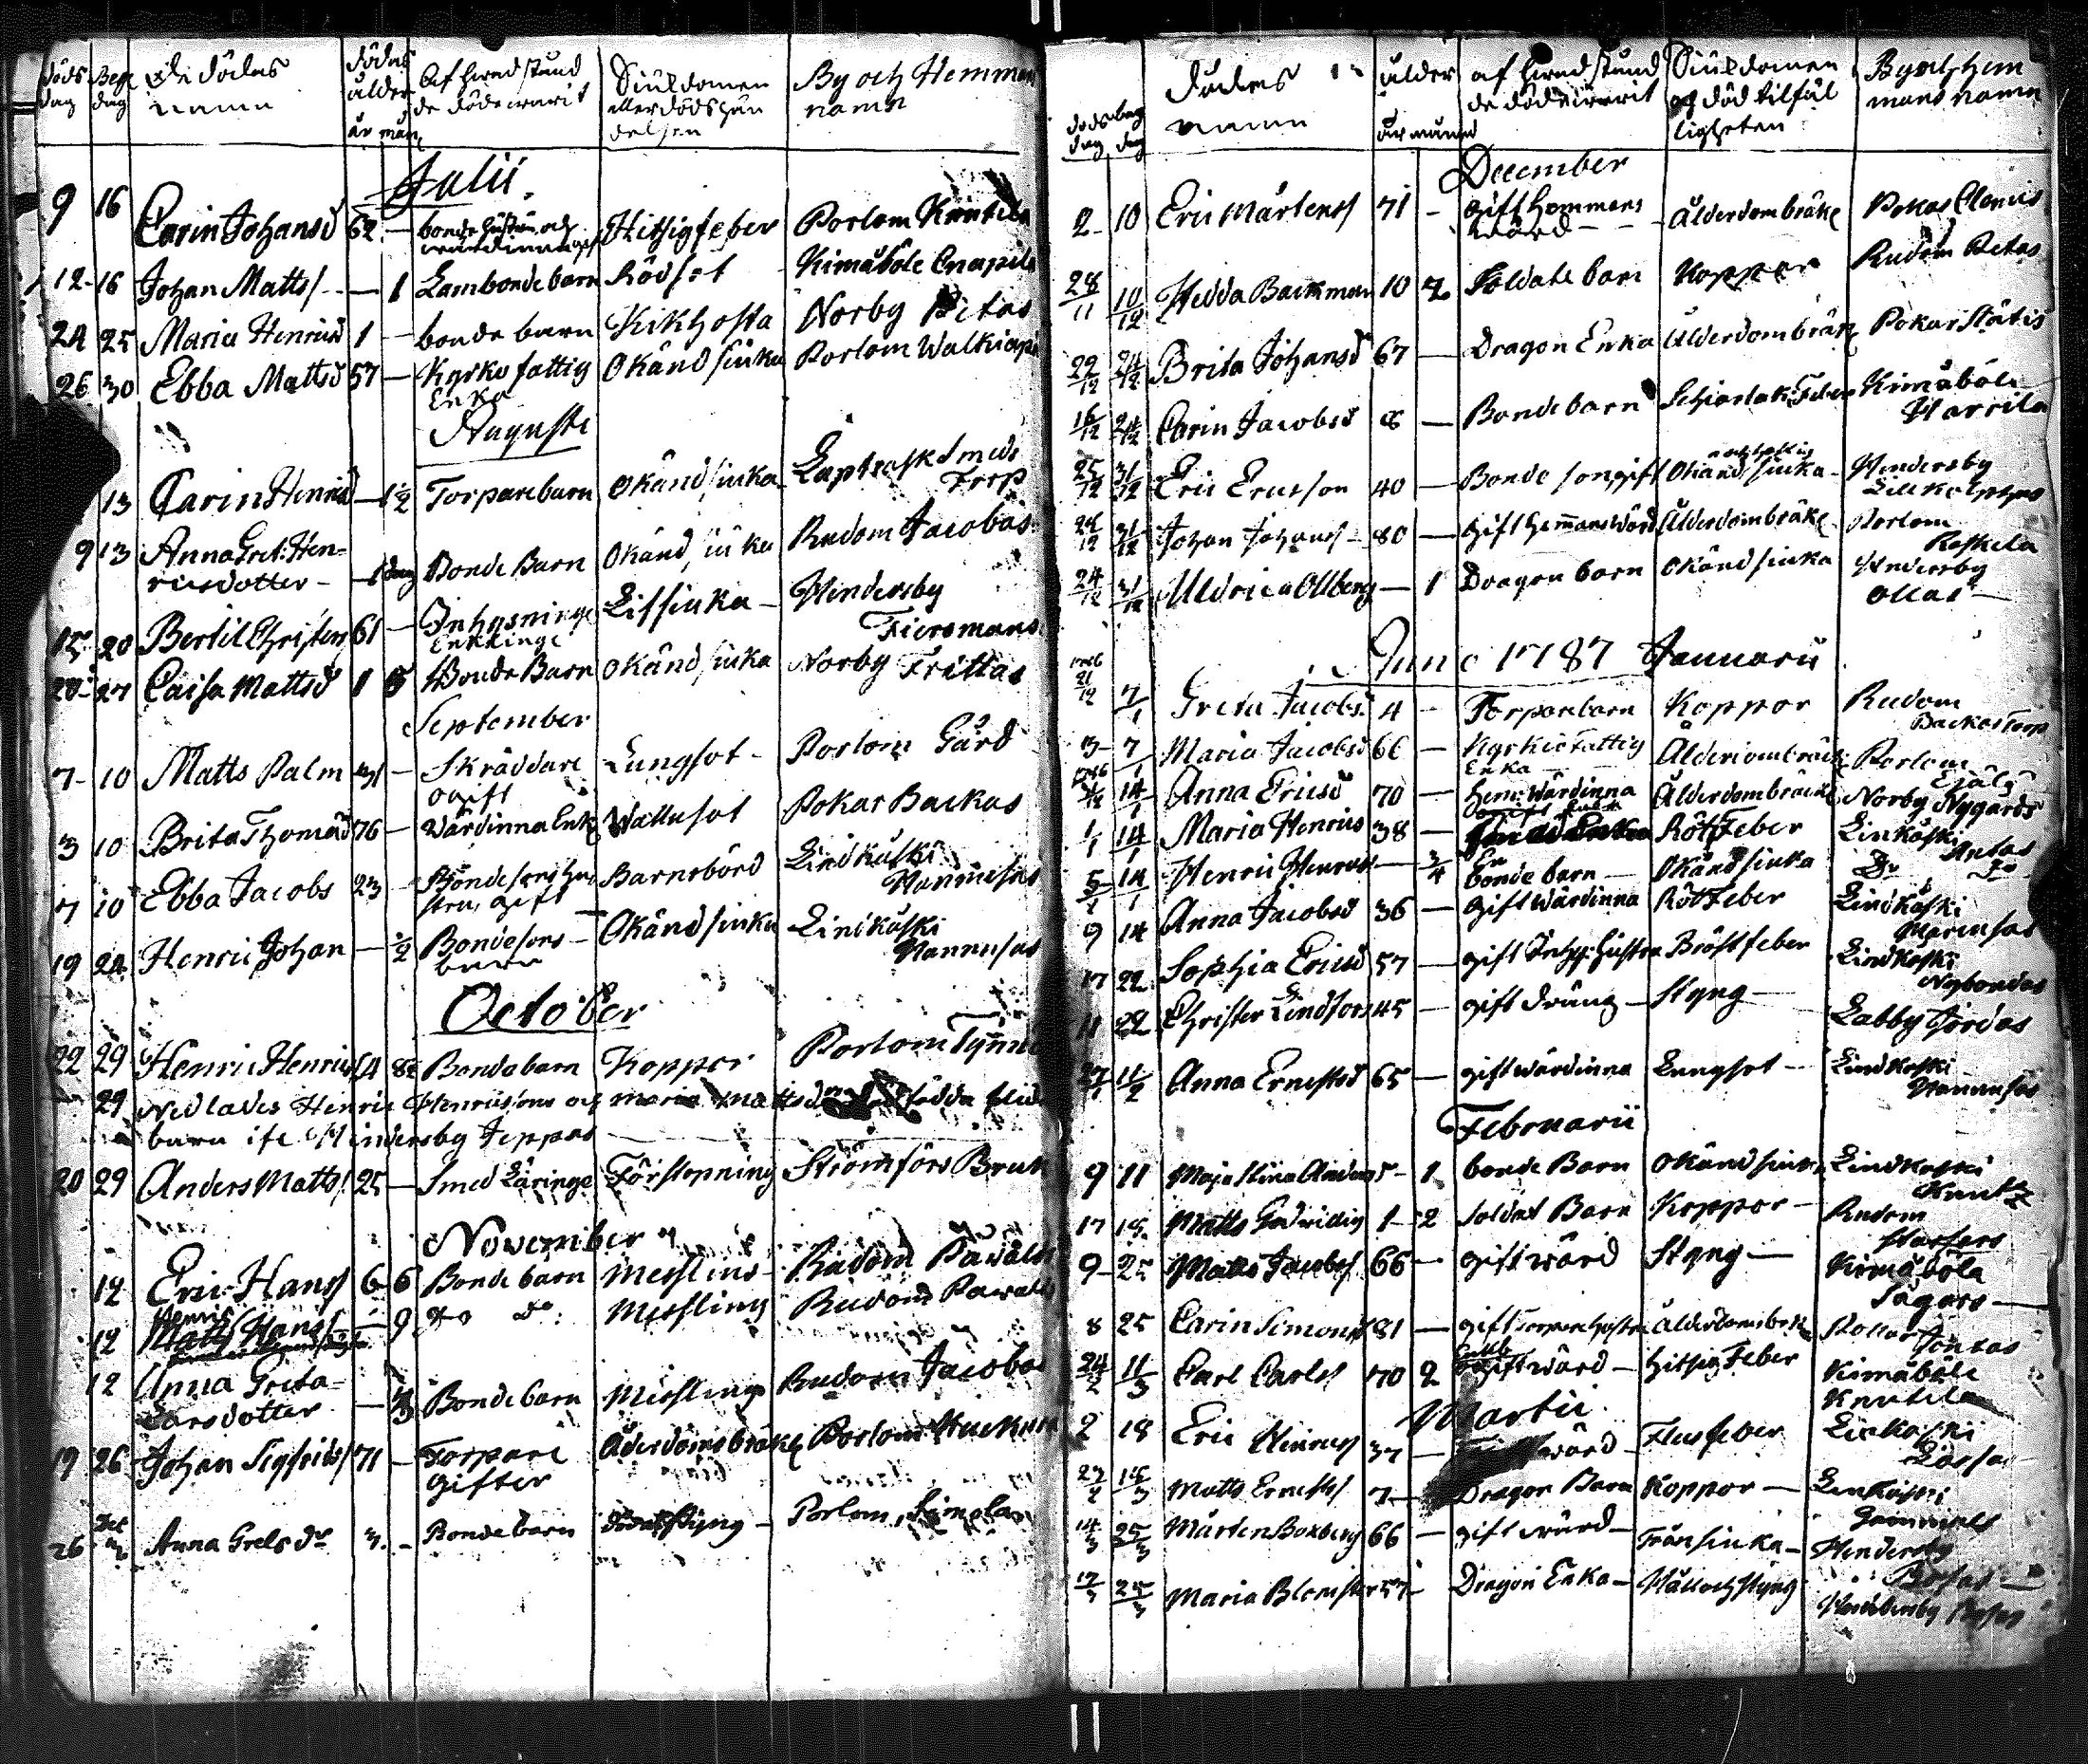 döds dag Begr dag De dödas namn dödas ålder år mån Af hvad stånd de döde warit Siukdomen eller dödshän delsen By och Hemmans namn
Julii
9 16 Carin Johansd 62 - bonde hustru och wärdinna gift Hitsigfeber Porlom Knutila
12 - 16 Johan Matts/ - - 1 Lambonde barn Rödsot Kimåböle Cnapila
24 25 Maria Henricsd 1 - bonde barn Kikhosta Norby Petas
26 30 Ebba Mattsd 57 - Kyrko fattig Enka Okänd siuka Porlom Walkiapä
Augusti
13 Carin Henricsd - 1½ Torpare barn Okänd siuka Laptrask Smeds Torp
9 13 Anna Gret: Hen-
ricsdotter - - 1 dag Bonde Barn Okänd siuka Rudom Jacobas
15 20 Bertil Christers 61 - Inhysninge Enkling Lifsiuka - Hindersby
Fiersmans
20 - 27 Caisa Mattsd 1 5 Bonde Barn Okänd siuka Norby Frittas
September
7 - 10 Matts Palm 31 - Skräddare ogift Lungsot - Porlom Gård
3 10 Brita Thomasd 76 - Wärdinna Enk Wattusot Pokar Backas
7 10 Ebba Jacobs 23 - Bondesons hustru, gift Barnsbörd Lindkoski
Nannusas
19 24 Henric Johan - ½ Bondesons - barn Okänd siuka Lindkoski
Nannusas
October
22 29 Henric Henrics 4 8½ Bonde barn Koppor Porlom Tynni
29 Nedlades Henric Henricsons och Maria Mattsd dödfödda flick
barn ifr. Hindersby Jeppas
20 29 Anders Matts/ 25 - Smed Läringe Förstopning Strömfors Bruk
November
12 Eric Hans/ 6 6 Bonde barn Messling Rudom Pawals
12 Henric Hans/ - 9 Do Do: Messling Rudom Pawals
12 Anna Greta -
Larsdotter - Bonde barn Messling Rudom Jacobas
19 26 Johan Sigfrids/ 71 - Torpare gifter Ålderdoms bräk Porlom
26 Anna Grels dr 3. - Bonde barn Styng - Porlom, Simolas
döds dag beg dag dödas namn ålder år månad af hvad stånd de döde warit Siukdomen och död tilfäl ligheten By och hem mans namn
December
2 10 Eric Mårtens/ 71 - gift hemmans wärd - - ålderdom bräk Pokar Clemis
28/11 10/12 Hedda Backman 10 2 Soldate barn Koppor Rudom Petas
22/12 24/12 Brita Johansd 67 - Dragon Enka ålderdom bräk Pokar Stätis
16/12 24/12 Carin Jacobsd 8 - Bonde barn Schiarlak. Feber Kimåböle
Harrila
25/12 31/12 Eric Ericsson 40 - Bonde son gift Okänd siuka - Hindersby
24/12 31/12 Johan Johans/ - 80 - gift hemmans wärd Ålderdom bräk Porlom
Roskela
24/12 31/12 Uldrica Ollberg - 1 Dragon barn Okänd siuka Hindersby
Ollas -
Anno 1787 Januarii
1786 21/12 7/1 Greta Jacobsd 4 - Torpare barn Koppor Rudom
Backas Torp
3 - 7/1 Maria Jacobsd 66 - Kyrkio Fattig Enka Ålderdom bräck Porlom
1786 14/1 Anna Ericsd 70 - hem: wärdinna Ålderdom bräck Norby Nygårds
1/1 14/1 Maria Henrics 38 - Röt Feber Linkoski
Antas
5/1 14/1 Henric Henrics/ - 3/4 En bonde barn - Okänd siuka Do Do
9 14 Anna Jacobsd 36 - gift wärdinna Röt Feber Lindkoski
Marensas
17 22 Sophia Ericsd 57 - gift Inhys: hustru Bröst feber Lindkoski
Nybondas
11 22 Christer Lindfors 45 - gift dräng - Styng - Labby Jordas
27/1 11/2 Anna Ernestsd 65 - gift wärdinna Lungsot - - Lindkoski
Nannusas
Februarii
9 11 Maja Stina Anders 5 - 1 bonde Barn Okänd siuk Lindkoski
Knuts
17 18 Matts Godwillig 1 - 2 Soldat Barn Koppor - Rudom
Staffers
9 - 25 Matts Jacobs/ 66 - gift wärd Styng - Kimåböle
Sågars -
8 25 Carin Simonsd 81 - gift torpare hustru ålderdoms bräk Pokar Jontas
24/2 11/3 Carl Carls/ 70 2 wärd - hitsig Feber Kimåböle
Knutila
Martii
2 18 Eric Henrics/ 37 - wärd - Flus feber Linkoski
Lassas
27/2 18/3 Matts Ernests/ 7 - Dragon Barn Koppor - Linkoski
Gammals
14/3 25/3 Mårten Boxberg 66 - gift wärd - Trånsiuka - Hindersby
Bosas -
17/3 25/3 Maria Blomster 57 - Dragon Enka - Håll och styng Hindersby Bosas